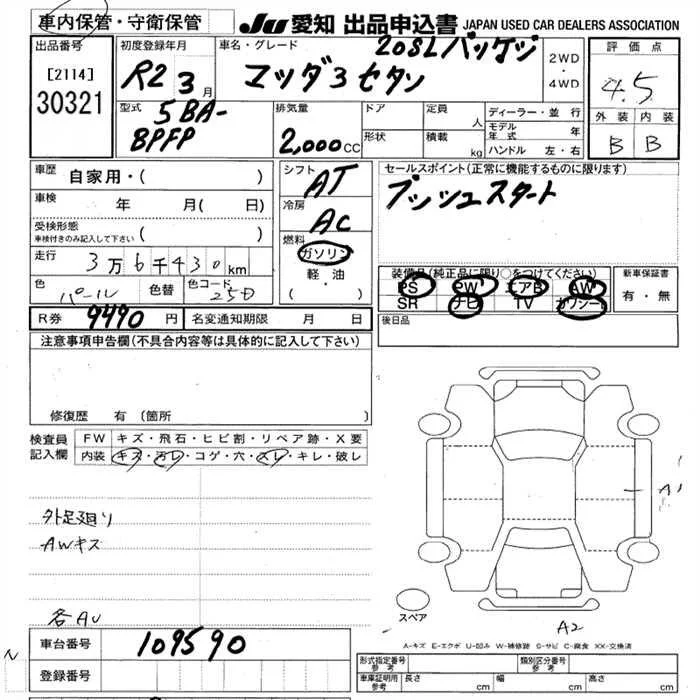 車内保管・守衛保管
JU 愛知 出品申込書 JAPAN USED CAR DEALERS ASSOCIATION
出品番号
[2114]
30321
初度登録年月
R2 3月
車名・グレード
20SLパッケジ
マツダ3セタン
2WD
・
4WD
評価点
4.5
外装 内装
B B
型式
5BA-
BPFP
排気量
2,000cc
ドア
形状
定員 人
積載 kg
ディーラー・並行
モデル年式 年
ハンドル 左・右
車歴 自家用・( )
車検 年 月( 日)
受検形態
車検付きのみ記入して下さい ( )
走行 3万6千430km
色 パール 色替 色コード 25D
シフト AT
冷房 AC
燃料
ガソリン
軽・油
・( )
セールスポイント(正常に機能するものに限ります)
プッシュスタート
装備品(純正品に限り○をつけてください)
PS PW エアB AW
SR ナビ TV カワシート
新車保証書
有・無
後日品
R券 9490円 名変通知期限 月 日
注意事項申告欄(不具合内容等は具体的に記入して下さい)
修復歴 有(箇所 )
検査員
記入欄
FW キズ・飛石・ヒビ割・リペア跡・X要
内装 キズ・汚レ・コゲ・穴・スレ・キレ・破レ
外足廻り
AWキズ
各AU
A1
スペア
A2
A-キズ E-エクボ U-凹み W-補修跡 S-サビ C-腐食 XX-交換済
車台番号 109590
登録番号
形式指定番号
参考
類別区分番号
参考
車庫証明用
参考
長さ cm 幅 cm 高さ cm